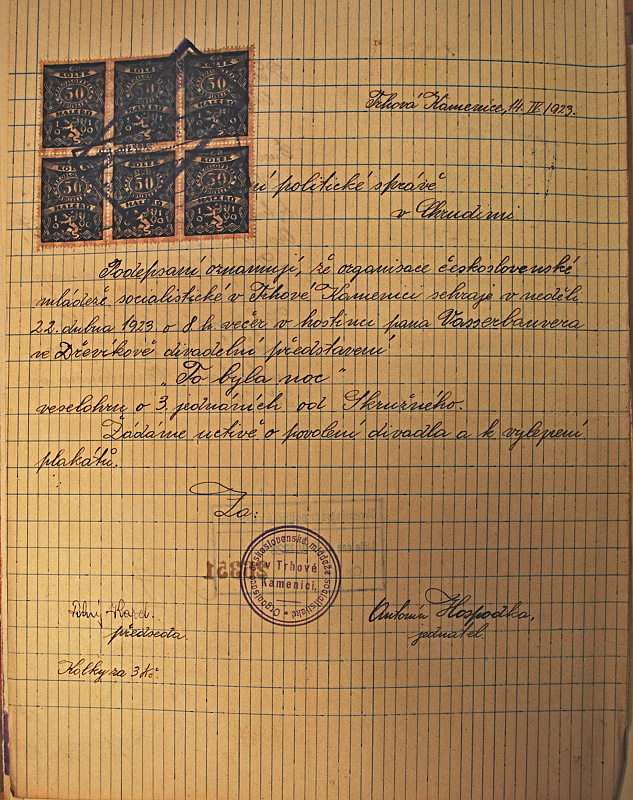 KOLEK
50
HALÉŘŮ
1919
KOLEK
50
HALÉŘŮ
1919
KOLEK
50
HALÉŘŮ
1919
KOLEK
50
HALÉŘŮ
1919
KOLEK
50
HALÉŘŮ
1919
KOLEK
50
HALÉŘŮ
1919
Trhová Kamenice, 14. IV. 1923.
ní politické správě
v Chrudimi
Podepsaní oznamují, že organisace československé
mládeže socialistické v Trhové Kamenici sehraje v neděli
22. dubna 1923 o 8 h. večer v hostinci pana Vasserbauera
ve Dřevíkově divadelní představení
„To byla noc"
veselohru o 3. jednáních od Skružného.
Žádáme uctivě o povolení divadla a k vylepení
plakátů.
Za:
Organisace československé mládeže socialistické
v Trhové
Kamenici.
předseda.
Antonín Hospodka,
jednatel.
Kolky za 3 Kč.